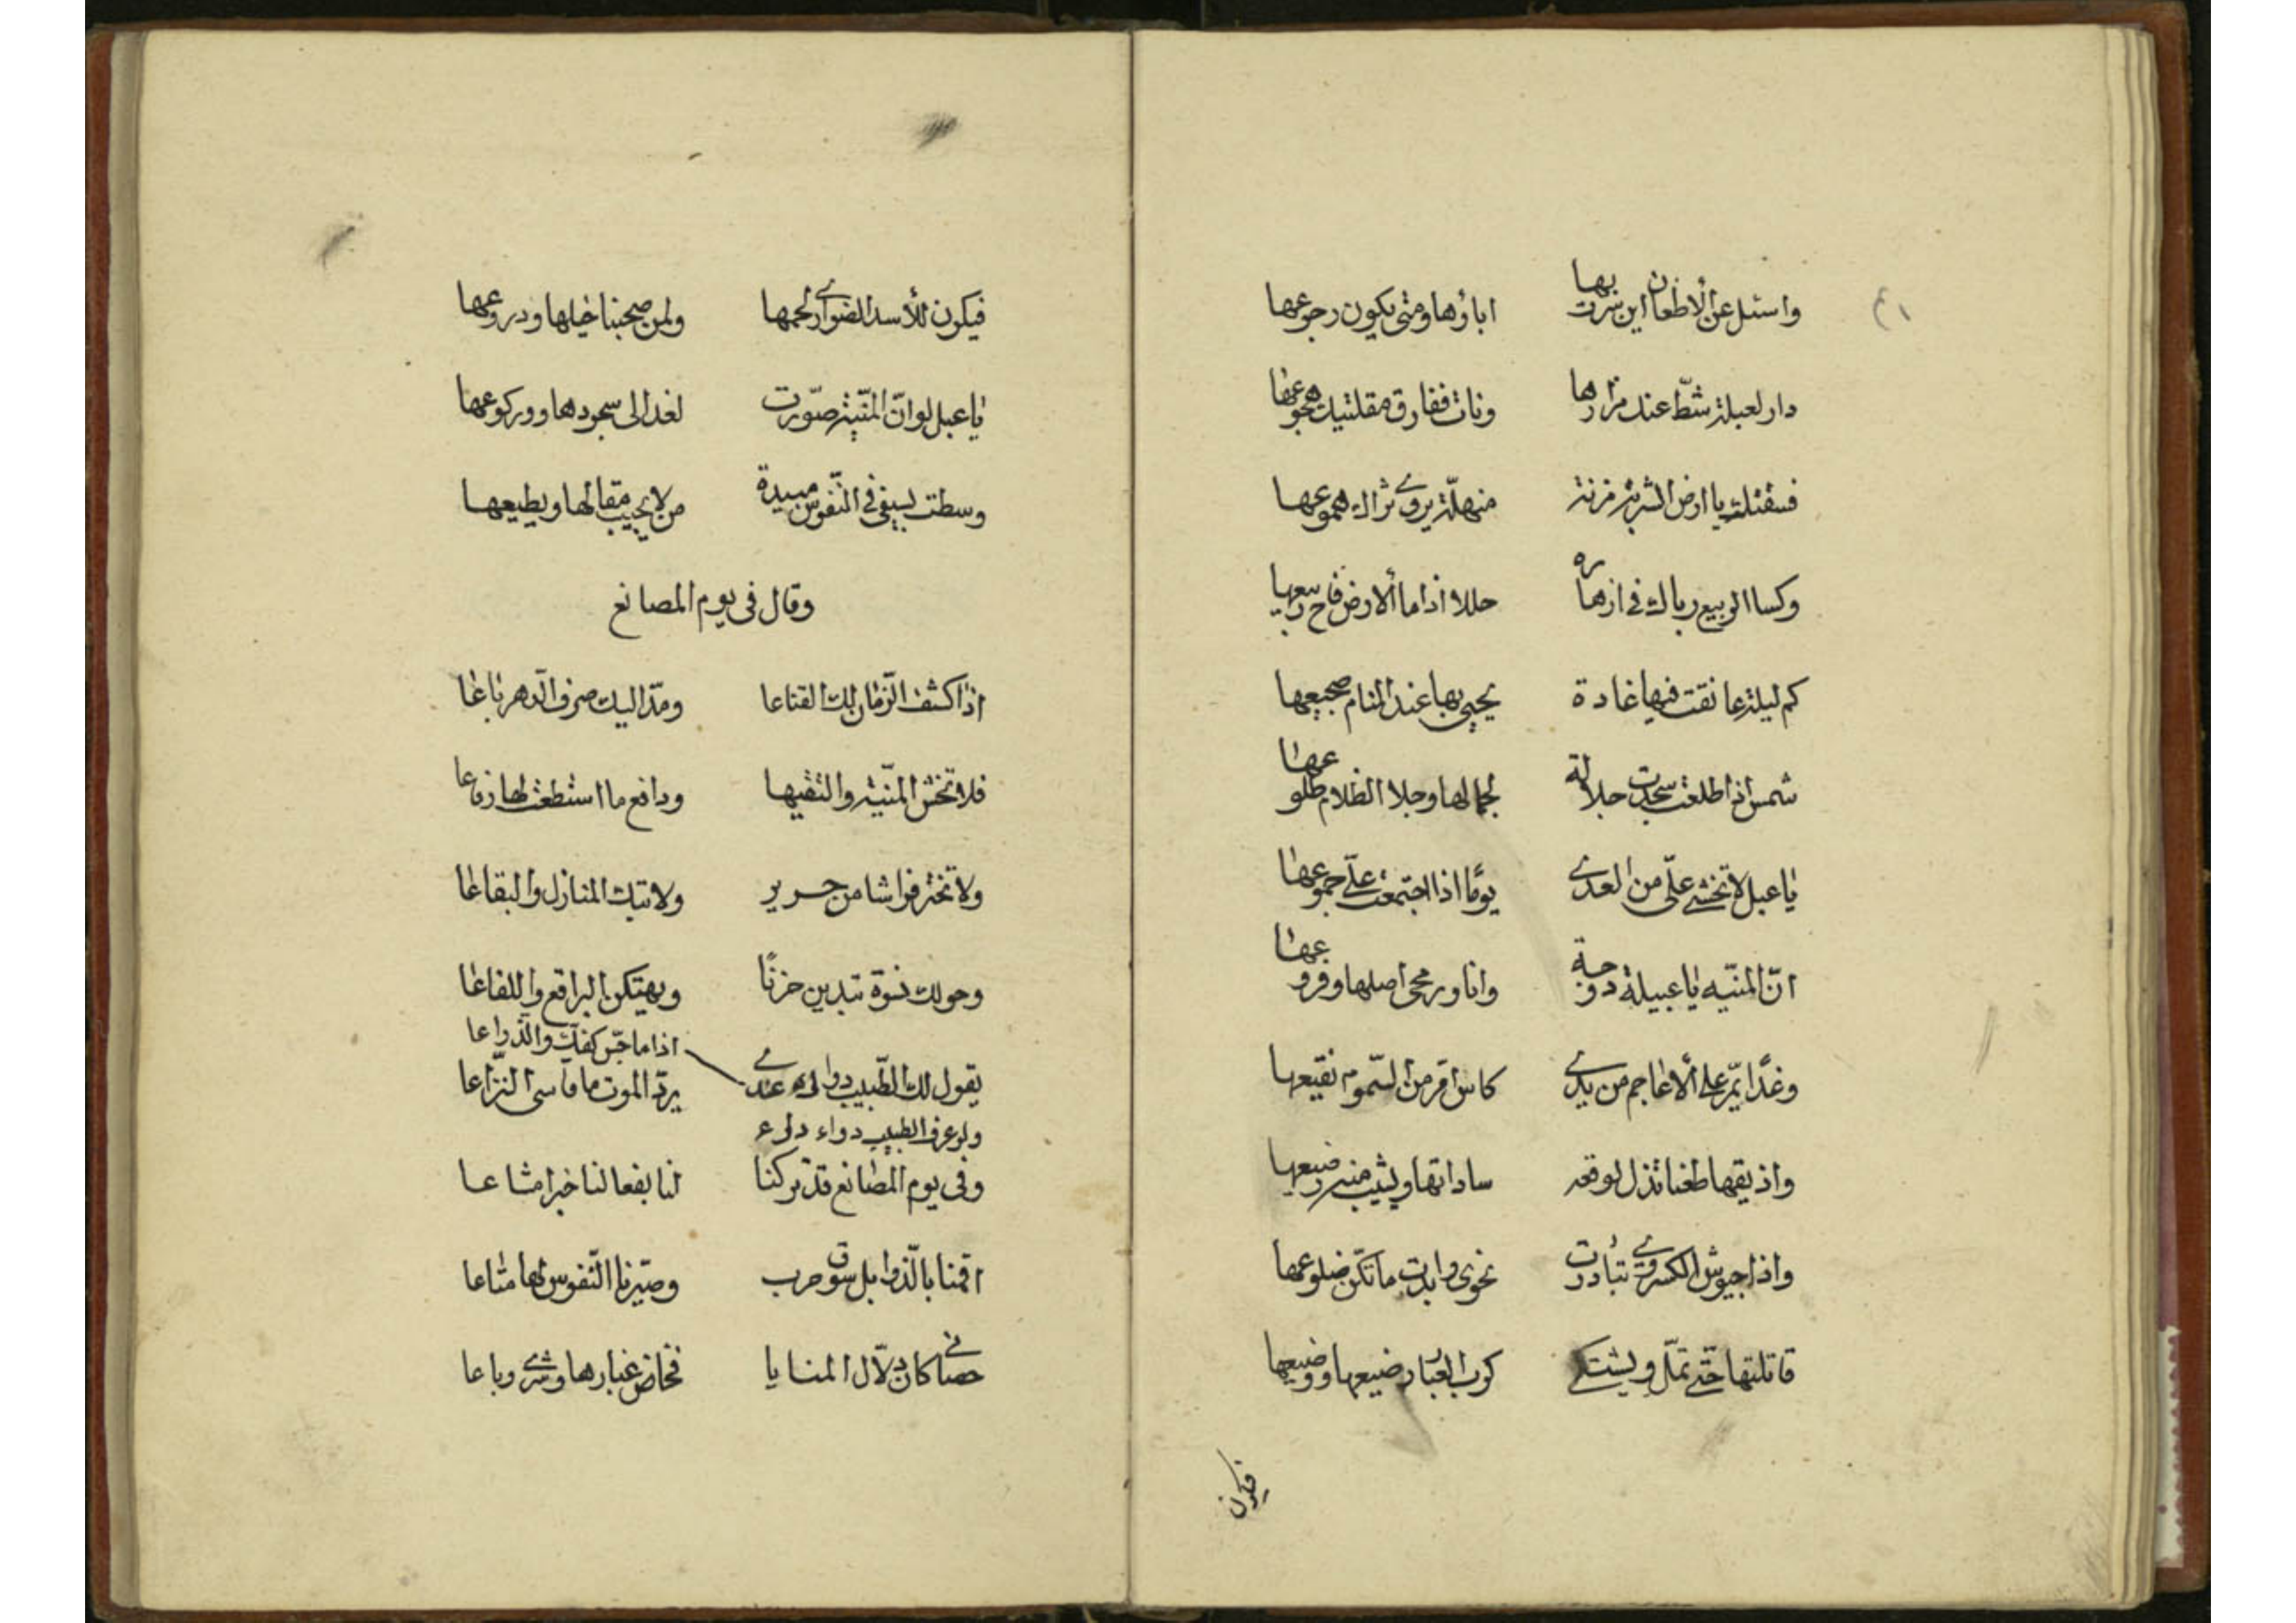 ٤١
واسئل عن الاظعان اين سرت بها اباؤها ومتى يكون رجوعها
دار لعبلة شطّ عند مزارها ونات ففارق مقلتيك هجوعها
فسقتك يا ارض الشربة مزنة منهلّة يروى ثراك هموعها
وكسا الربيع رباك فى ازهاره حللا اذا ما ألارض فاح ربيعها
كم ليلة عانقت فيها غادة يحيى بها عند المنام ضجيعها
شمس اذا طلعت سجدت جلالة لجمالها وجلا الظلام طلوعها
يا عبل لا تخشى علّى من العدى يومًا اذا اجتمعت علّى جموعها
انّ المنيّه يا عبيلة دوحة وانا ورمحى اصلها وفروعها
وغدًا يمّر على ألاعاجم من يدى كاس امّر من السّموم نقيعها
واذيقها طعنا تذل لوقعه ساداتها ويشيب منه رضيعها
واذا جيوش الكسروى تبادرت نحوى وابدت ما تكن ضلوعها
قاتلتها حتى تملّ ويشتكى كرب الغبار رضيعها ووضيعها
فيكون
فيكون للأسد الضوارى لحمها ولمن صحبنا خيلها ودروعها
يا عبل لو انّ المنيّة صوّرت لغدا الى سجودها وركوعها
وسطت بسيفى فى النّفوس مبيدة من لا يجيب مقالها ويطيعها
وقال فى يوم المصانع
اذا كشف الزّمان لك القناعا ومدّ اليك صرف الدّهر باعا
فلا تخش المنيّة والتقيها ودافع ما استطعت لها دفاعا
ولا تختر فراشا من حرير ولا تبك المنازل والبقاعا
وحولك نسوة تبدين حزنًا ويهتكن البراقع واللفاعا
اذا ما جسّ كفك والذّراعا
يقول لك الطّبيب دواك عندى يردّ الموت ما قاسى النّزاعا
ولو عرف الطبيب دواء داء
وفى يوم المصانع قد تركنا لنا بفعالنا خبرا مشاعا
اقمنا بالذّوابل سوق حرب وصيّرنا النّفوس لها متاعا
حصانى كان دلّال المنايا فخاض غبارها وشرى وباعا